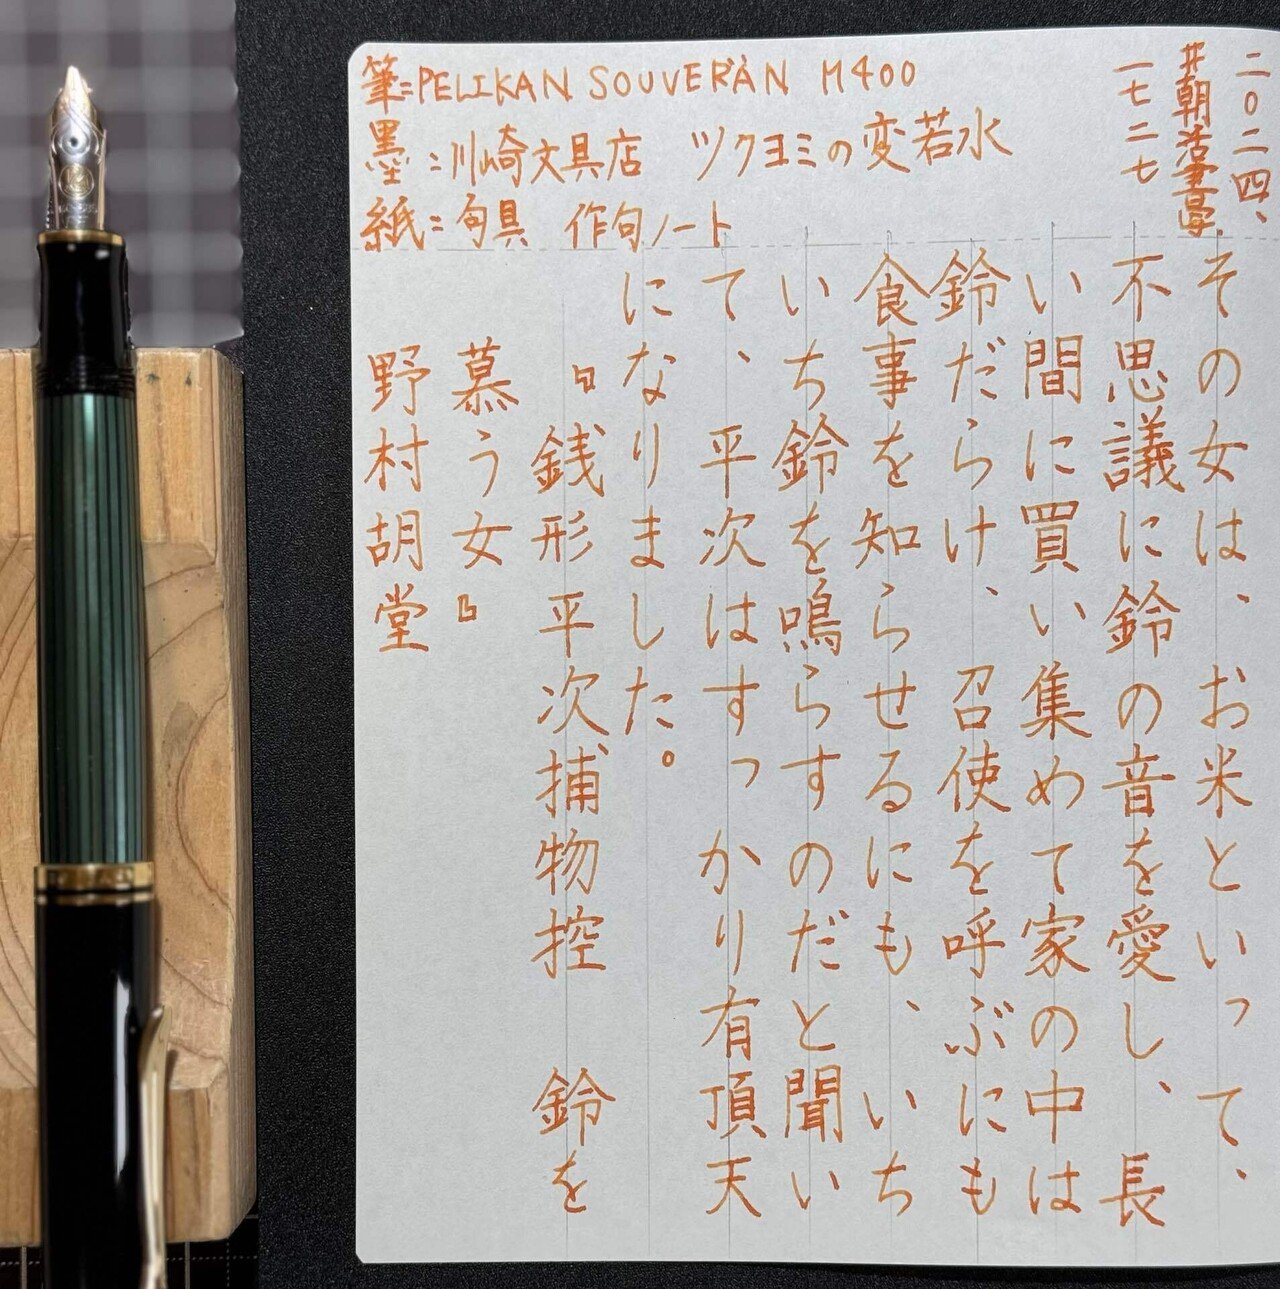 筆=PELIKAN SOUVERÄN M400
墨:川崎文具店 ツクヨミの変若水
紙=旬具 作句ノート
二〇二四、
#朝活書写
一七二七
その女は、お米といって、
不思議に鈴の音を愛し、長
い間に買い集めて家の中は
鈴だらけ、召使を呼ぶにも
食事を知らせるにも、いち
いち鈴を鳴らすのだと聞い
て、平次はすっかり有頂天
になりました。
『銭形平次捕物控 鈴を
慕う女』
野村胡堂